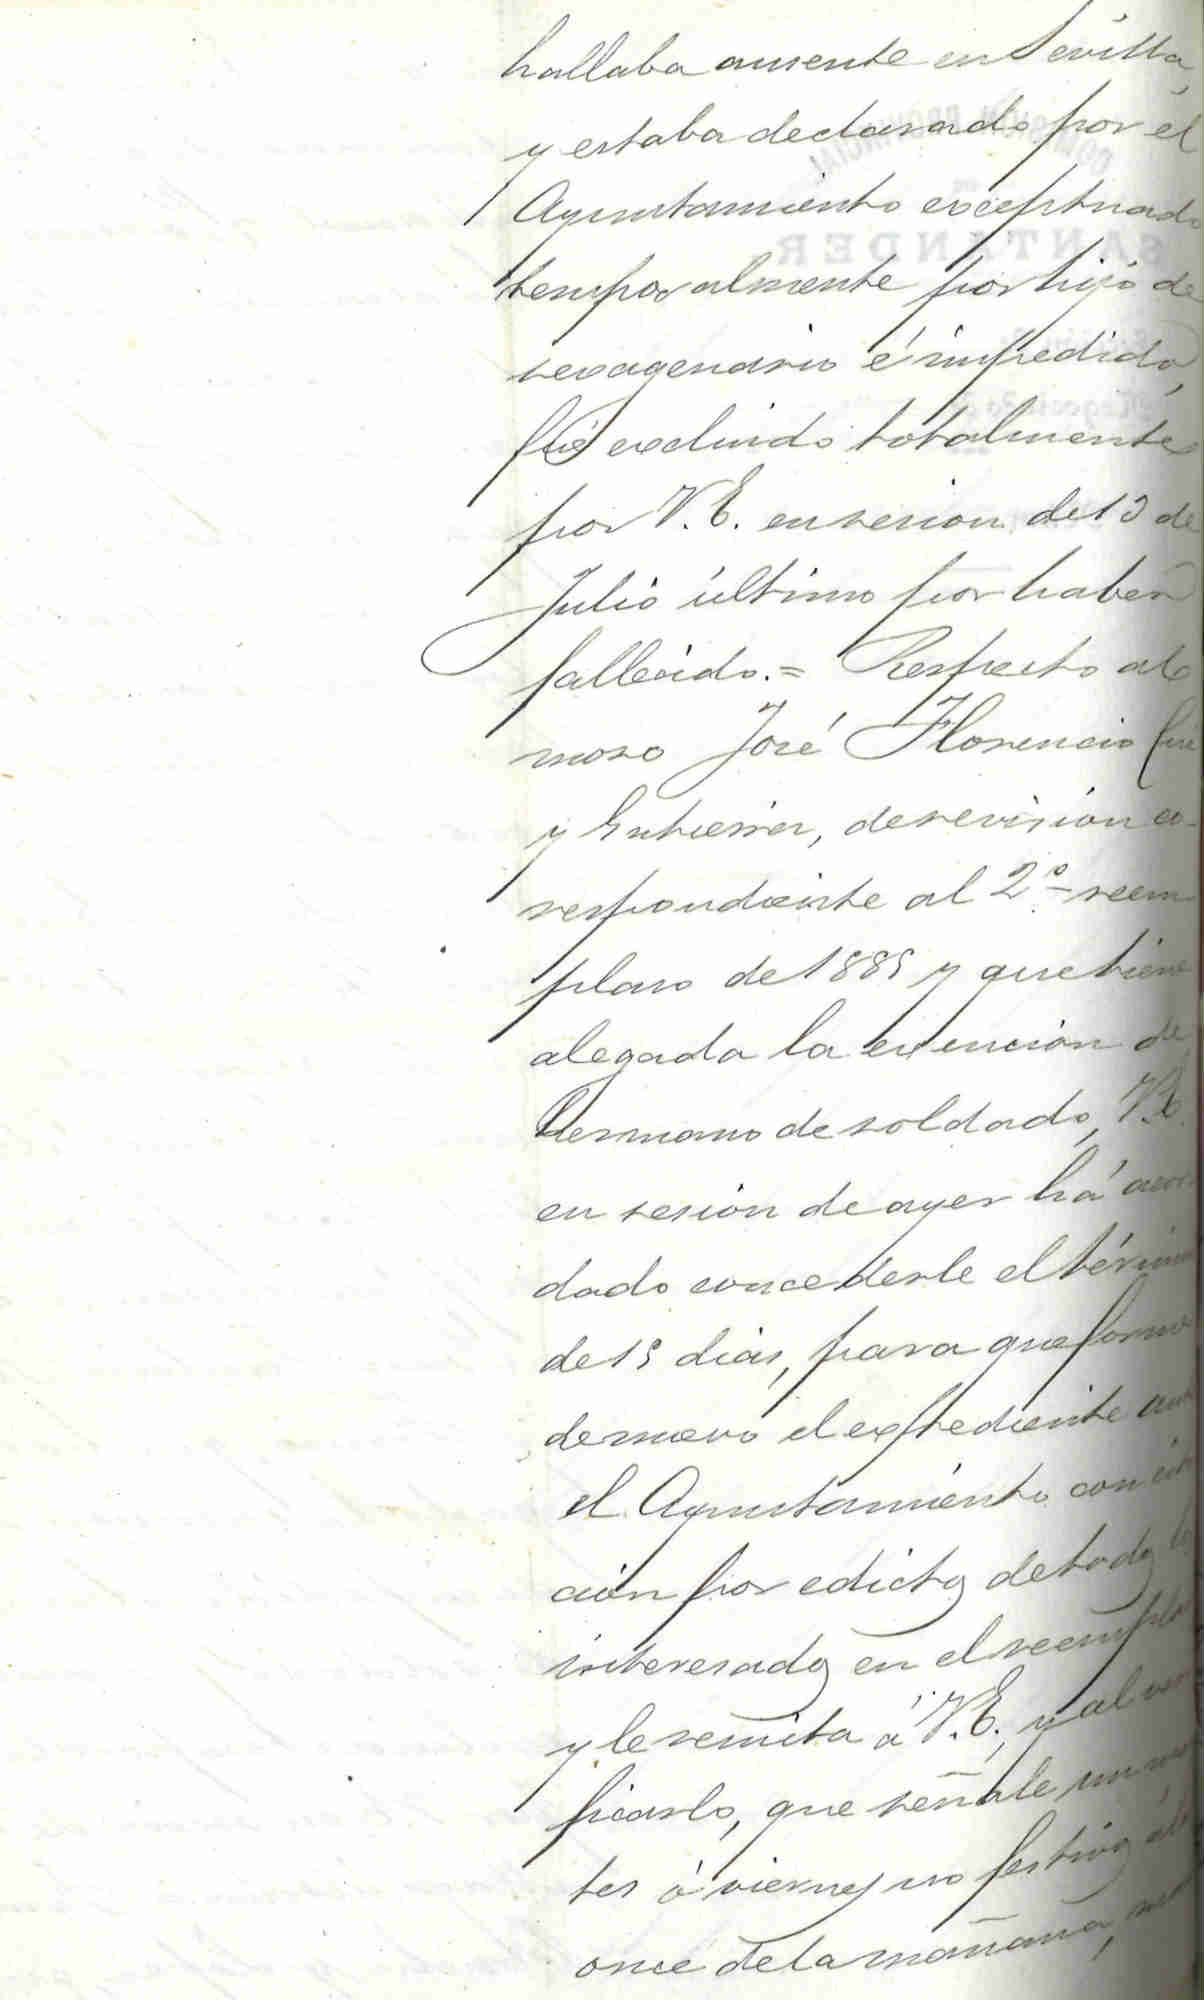 hallaba ausente en Sevilla,
y estaba declarado por el
Ayuntamiento exceptuado
temporalmente por hijo de
sexagenario é impedido,
fué excluido totalmente
por V.E. en sesion de 13 de
Julio último por haber
fallecido.= Respecto al
moso José Florencio
y Gutierrez, de revisión co-
respondiente al 2º reem
plaso de 1885 y que tiene
alegada la exención de
hermano de soldado, V.E.
en sesión de ayer há acor
dado concederle el término
de 15 dias, para que forme
de nuevo el expediente ante
el Ayuntamiento con cita
ción por edictos de todos los
interesados en el reemplaso
y le remita á V.E., y al veri
ficarlo, que señale un mar
tes ó viernes no festivos á las
once de la mañana,
COMISIÓN PROVINCIAL
DE
SANTANDER
Negociado